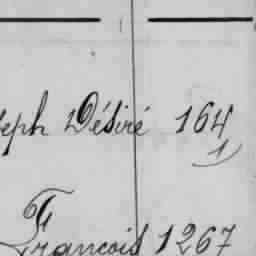 seph Désiré 164
1)
François 1267